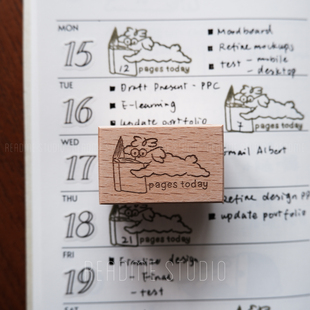 MON
15
12
pages today
Moodboard
Refine mockups
test - mobile
- desktop
TUE
16
Draft Present - PPC
E-learning
update portfolio
7
pages today
WED
17
Email Albert
pages today
THU
18
21
pages today
Refine design PP
update portfolio
FRI
19
Finalize design
- Final
- test
READ STUDIO